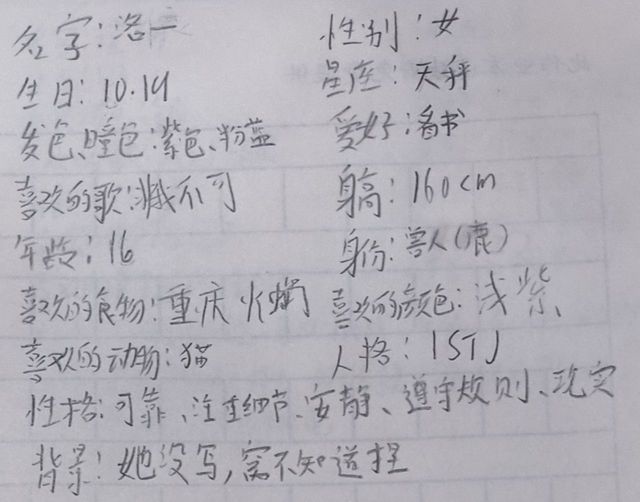 名字:洛一 性别:女
生日:10.19 星座:天秤
发色、瞳色:紫色、粉蓝 爱好:看书
喜欢的歌:非我不可 身高:160cm
年龄:16 身份:兽人(鹿)
喜欢的食物:重庆火锅 喜欢的颜色:浅紫
喜欢的动物:猫 人格:ISTJ
性格:可靠、注重细节、安静、遵守规则、现实
背景:她没写,窝不知道捏